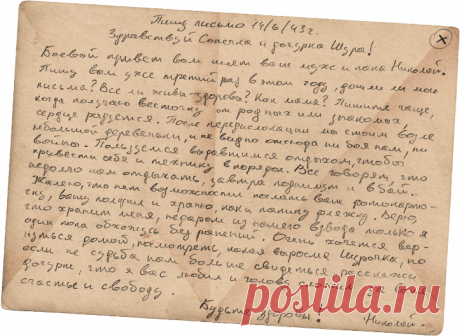 Пишу письмо 14/6/43г.
Здравствуй Соньгла и дочурка Шура!
Боевой привет вам шлёт ваш муж и папа Николай.
Пишу вам уже третий раз в этом году, дошли ли мои
письма? Все ли живы-здоровы? Как мама? Пишите чаще,
когда получаю весточку от родных или знакомых,
сердце радуется. После передислокации мы стоим возле
небольшой деревеньки, и не видно отсюда ни боя нам, ни
войны. Пользуемся вырвавшимся отдыхом, чтобы
привести себя и технику в порядок. Все говорят, что
недолго нам отдыхать, завтра поднимут и в бой.
Жалею, что нет возможности послать вам фотокарто-
чку, вашу получил и храню, как и папину фляжку. Верю,
что хранит меня, недаром из нашего взвода только я
один пока обхожусь без ранений. Очень хочется вер-
нуться домой, посмотреть, какая выросла Шурочка, но
если не судьба нам больше свидеться, расскажи
дочурке, что я вас любил и голову сложил за ваше
счастье и свободу.
Будьте здоровы! Николай.
posila.com